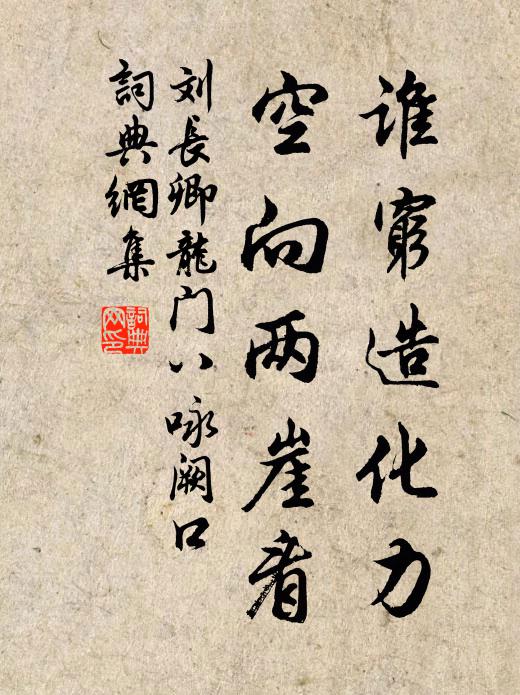 谁穷造化力
空向两崖看
刘长卿龙门八咏阙口
词典网集
词典网印